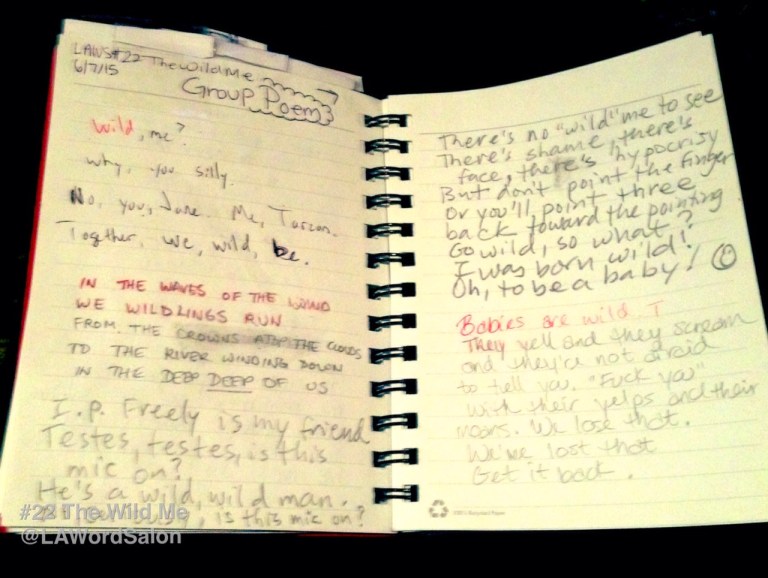 LAWS#22 The Wild Me
6/7/15
Group Poem
Wild, me?
Why, you silly.
No, you, Jane. Me, Tarzan.
Together, we, wild, be.
IN THE WAVES OF THE WIND
WE WILDLINGS RUN
FROM THE CROWNS ATOP THE CLOUDS
TO THE RIVER WINDING DOWN
IN THE DEEP DEEP OF US
I.P. Freely is my friend
Testes, testes, is this
mic on?
He's a wild, wild man.
, is this mic on?
There's no "wild" me to see
There's shame, there's
face, there's hypocrisy
But don't point the finger
Or you'll point three
back toward the pointing
Go wild, so what?
I was born wild!
Oh, to be a baby!
Babies are wild
They yell and they scream
and they're not afraid
to tell you. "Fuck you"
with their yelps and their
moans. We lose that.
We've lost that
Get it back.
100% Recycled Paper
#22 The Wild Me
@LAWordSalon